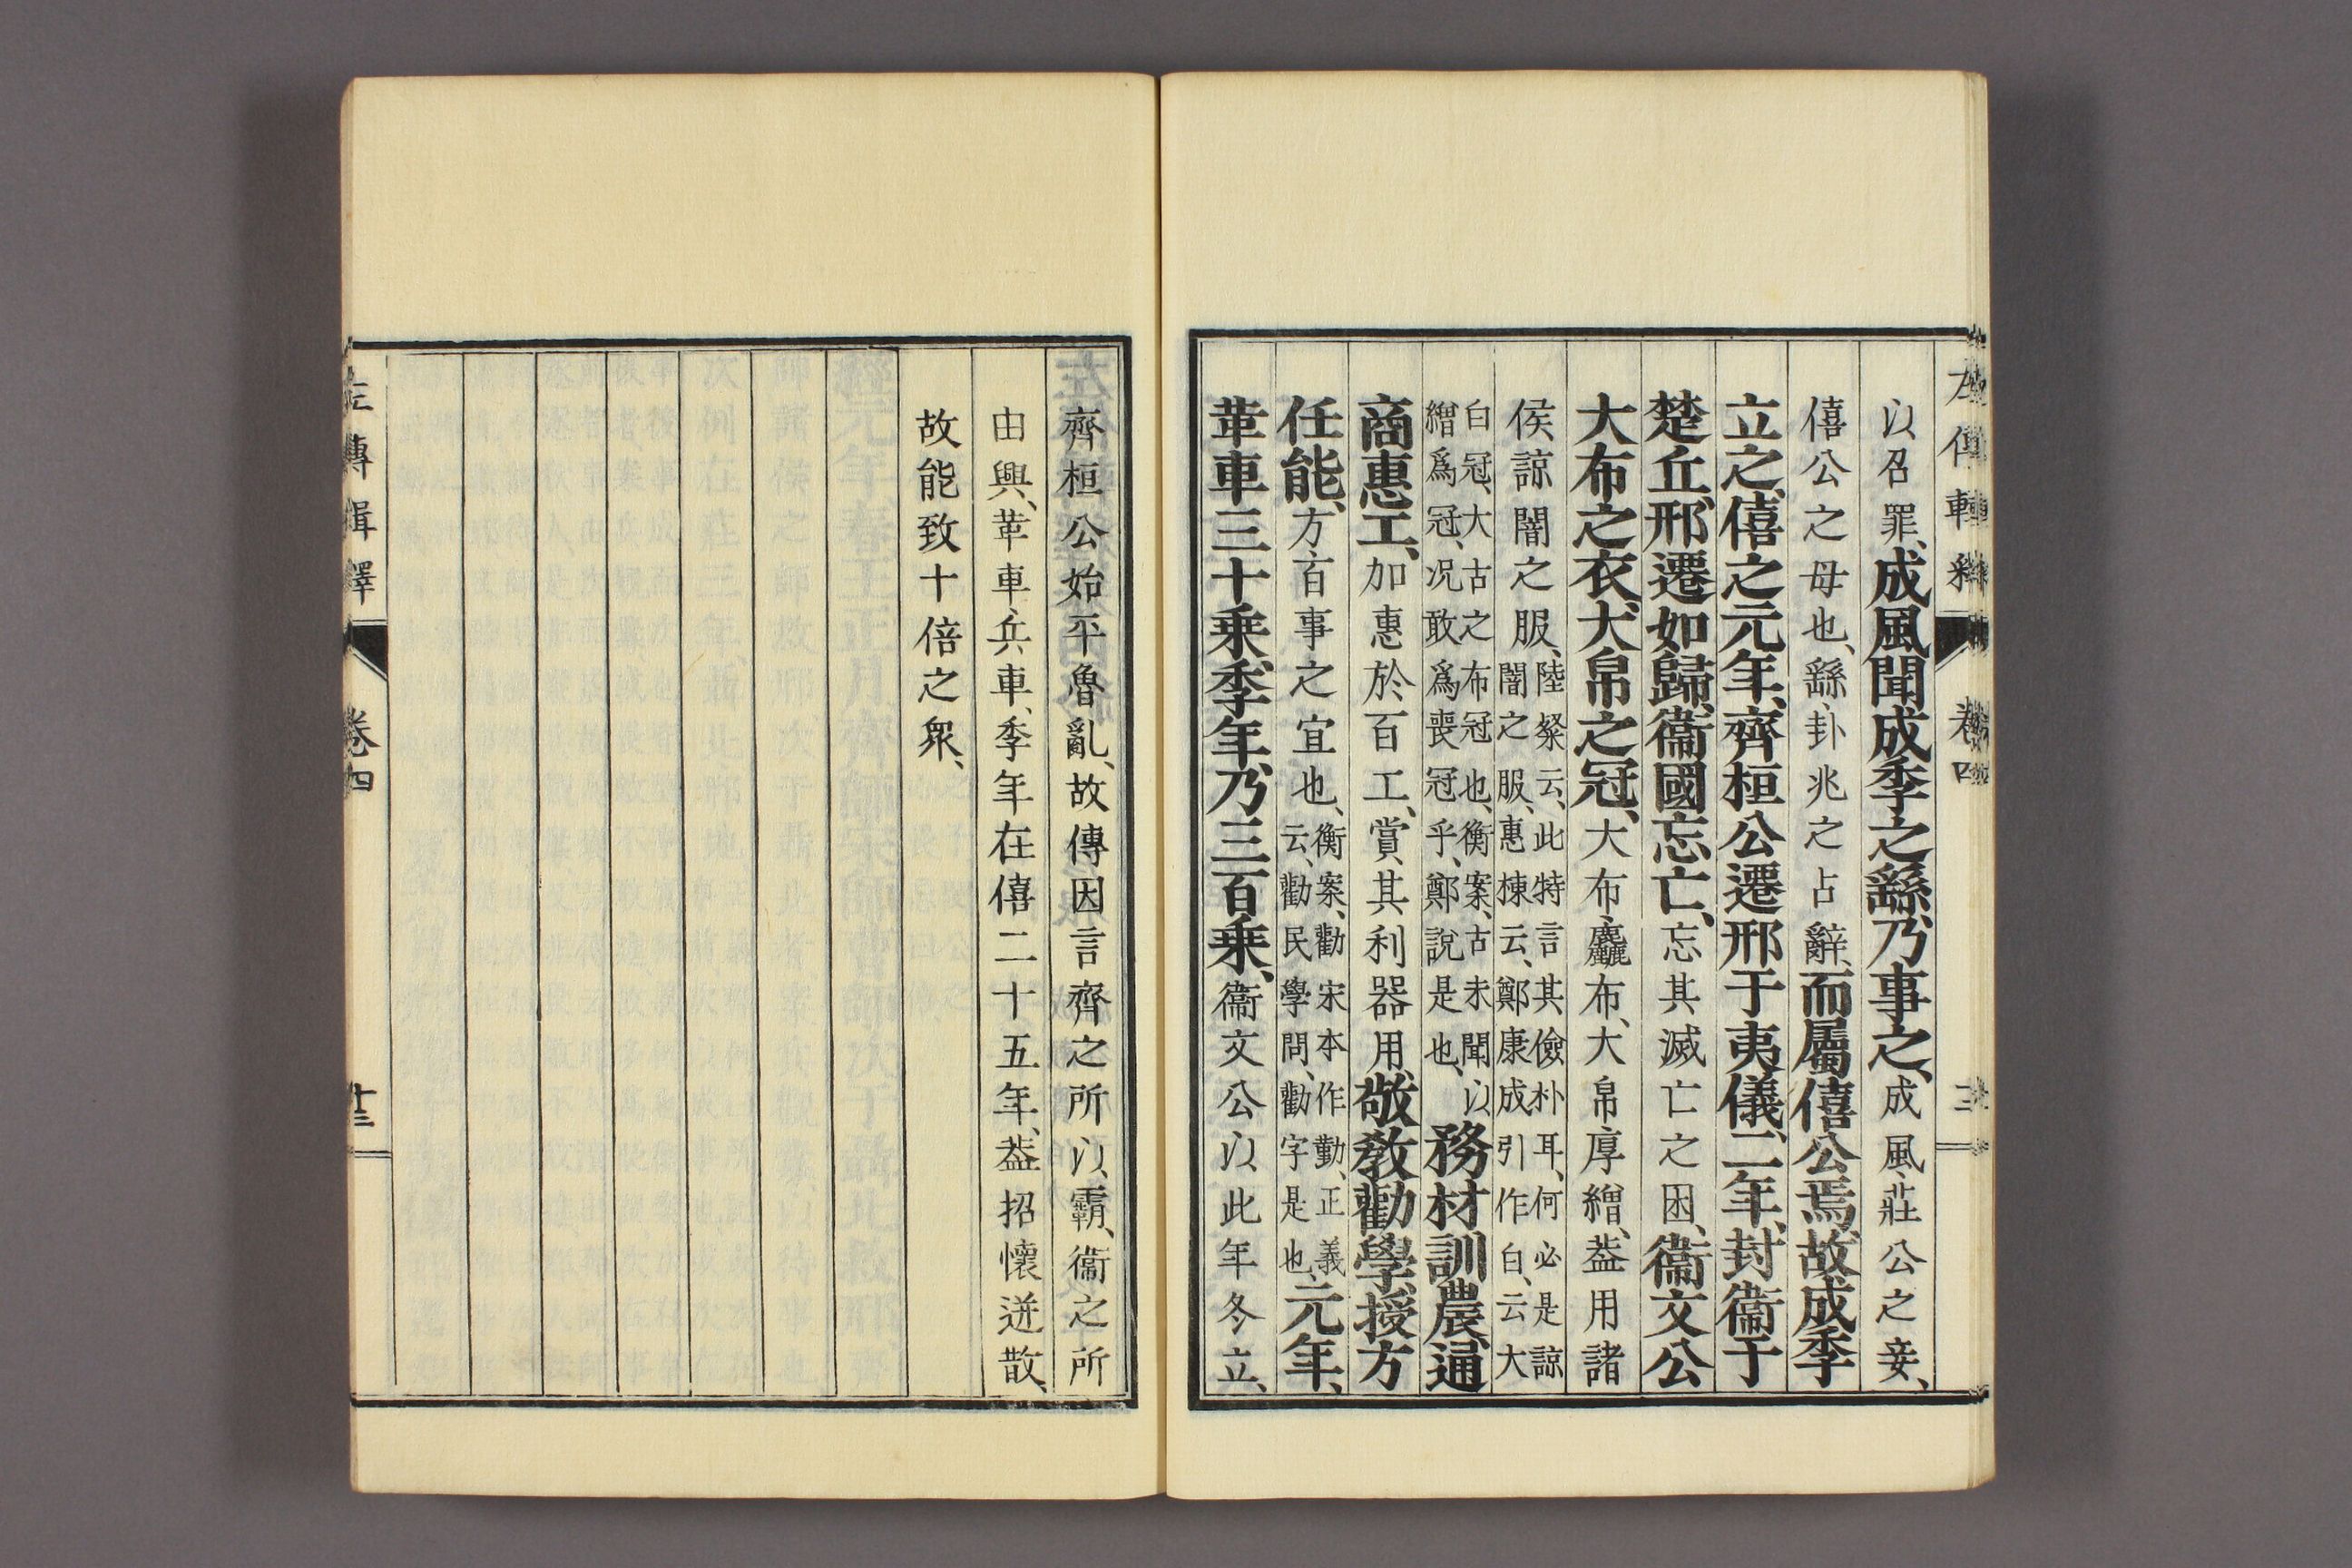 以召罪、成風聞成季之繇、乃事之、成風、莊公之妾、
僖公之母也、繇、卦兆之占辭、而屬僖公焉、故成季
立之、僖之元年、齊桓公遷邢于夷儀、二年、封衞于
楚丘、邢遷如歸、衞國忘亡、忘其滅亡之困、衞文公
大布之衣、大帛之冠、大布、麤布、大帛、厚繒、葢用諸
侯諒闇之服、
陸粲云、此特言其儉朴耳、何必是諒
闇之服、惠棟云、鄭康成引作白、云大
白冠、大古之布冠也、衡案、古未聞以
繒爲冠、况敢爲喪冠乎、鄭說是也、
務材訓農、通
商惠工、加惠於百工、賞其利器用、敬敎勸學、授方
任能、方、百事之宜也、
衡案、勸、宋本作勤、正義
云、勸民學問、勸字是也、
元年、
革車三十乘、季年、乃三百乘、衞文公以此年冬立、
齊桓公始平魯亂、故傳因言齊之所以霸、衞之所
由興、革車、兵車、季年在僖二十五年、葢招懷迸散、
故能致十倍之衆、
左傳輯釋
卷四
廿三